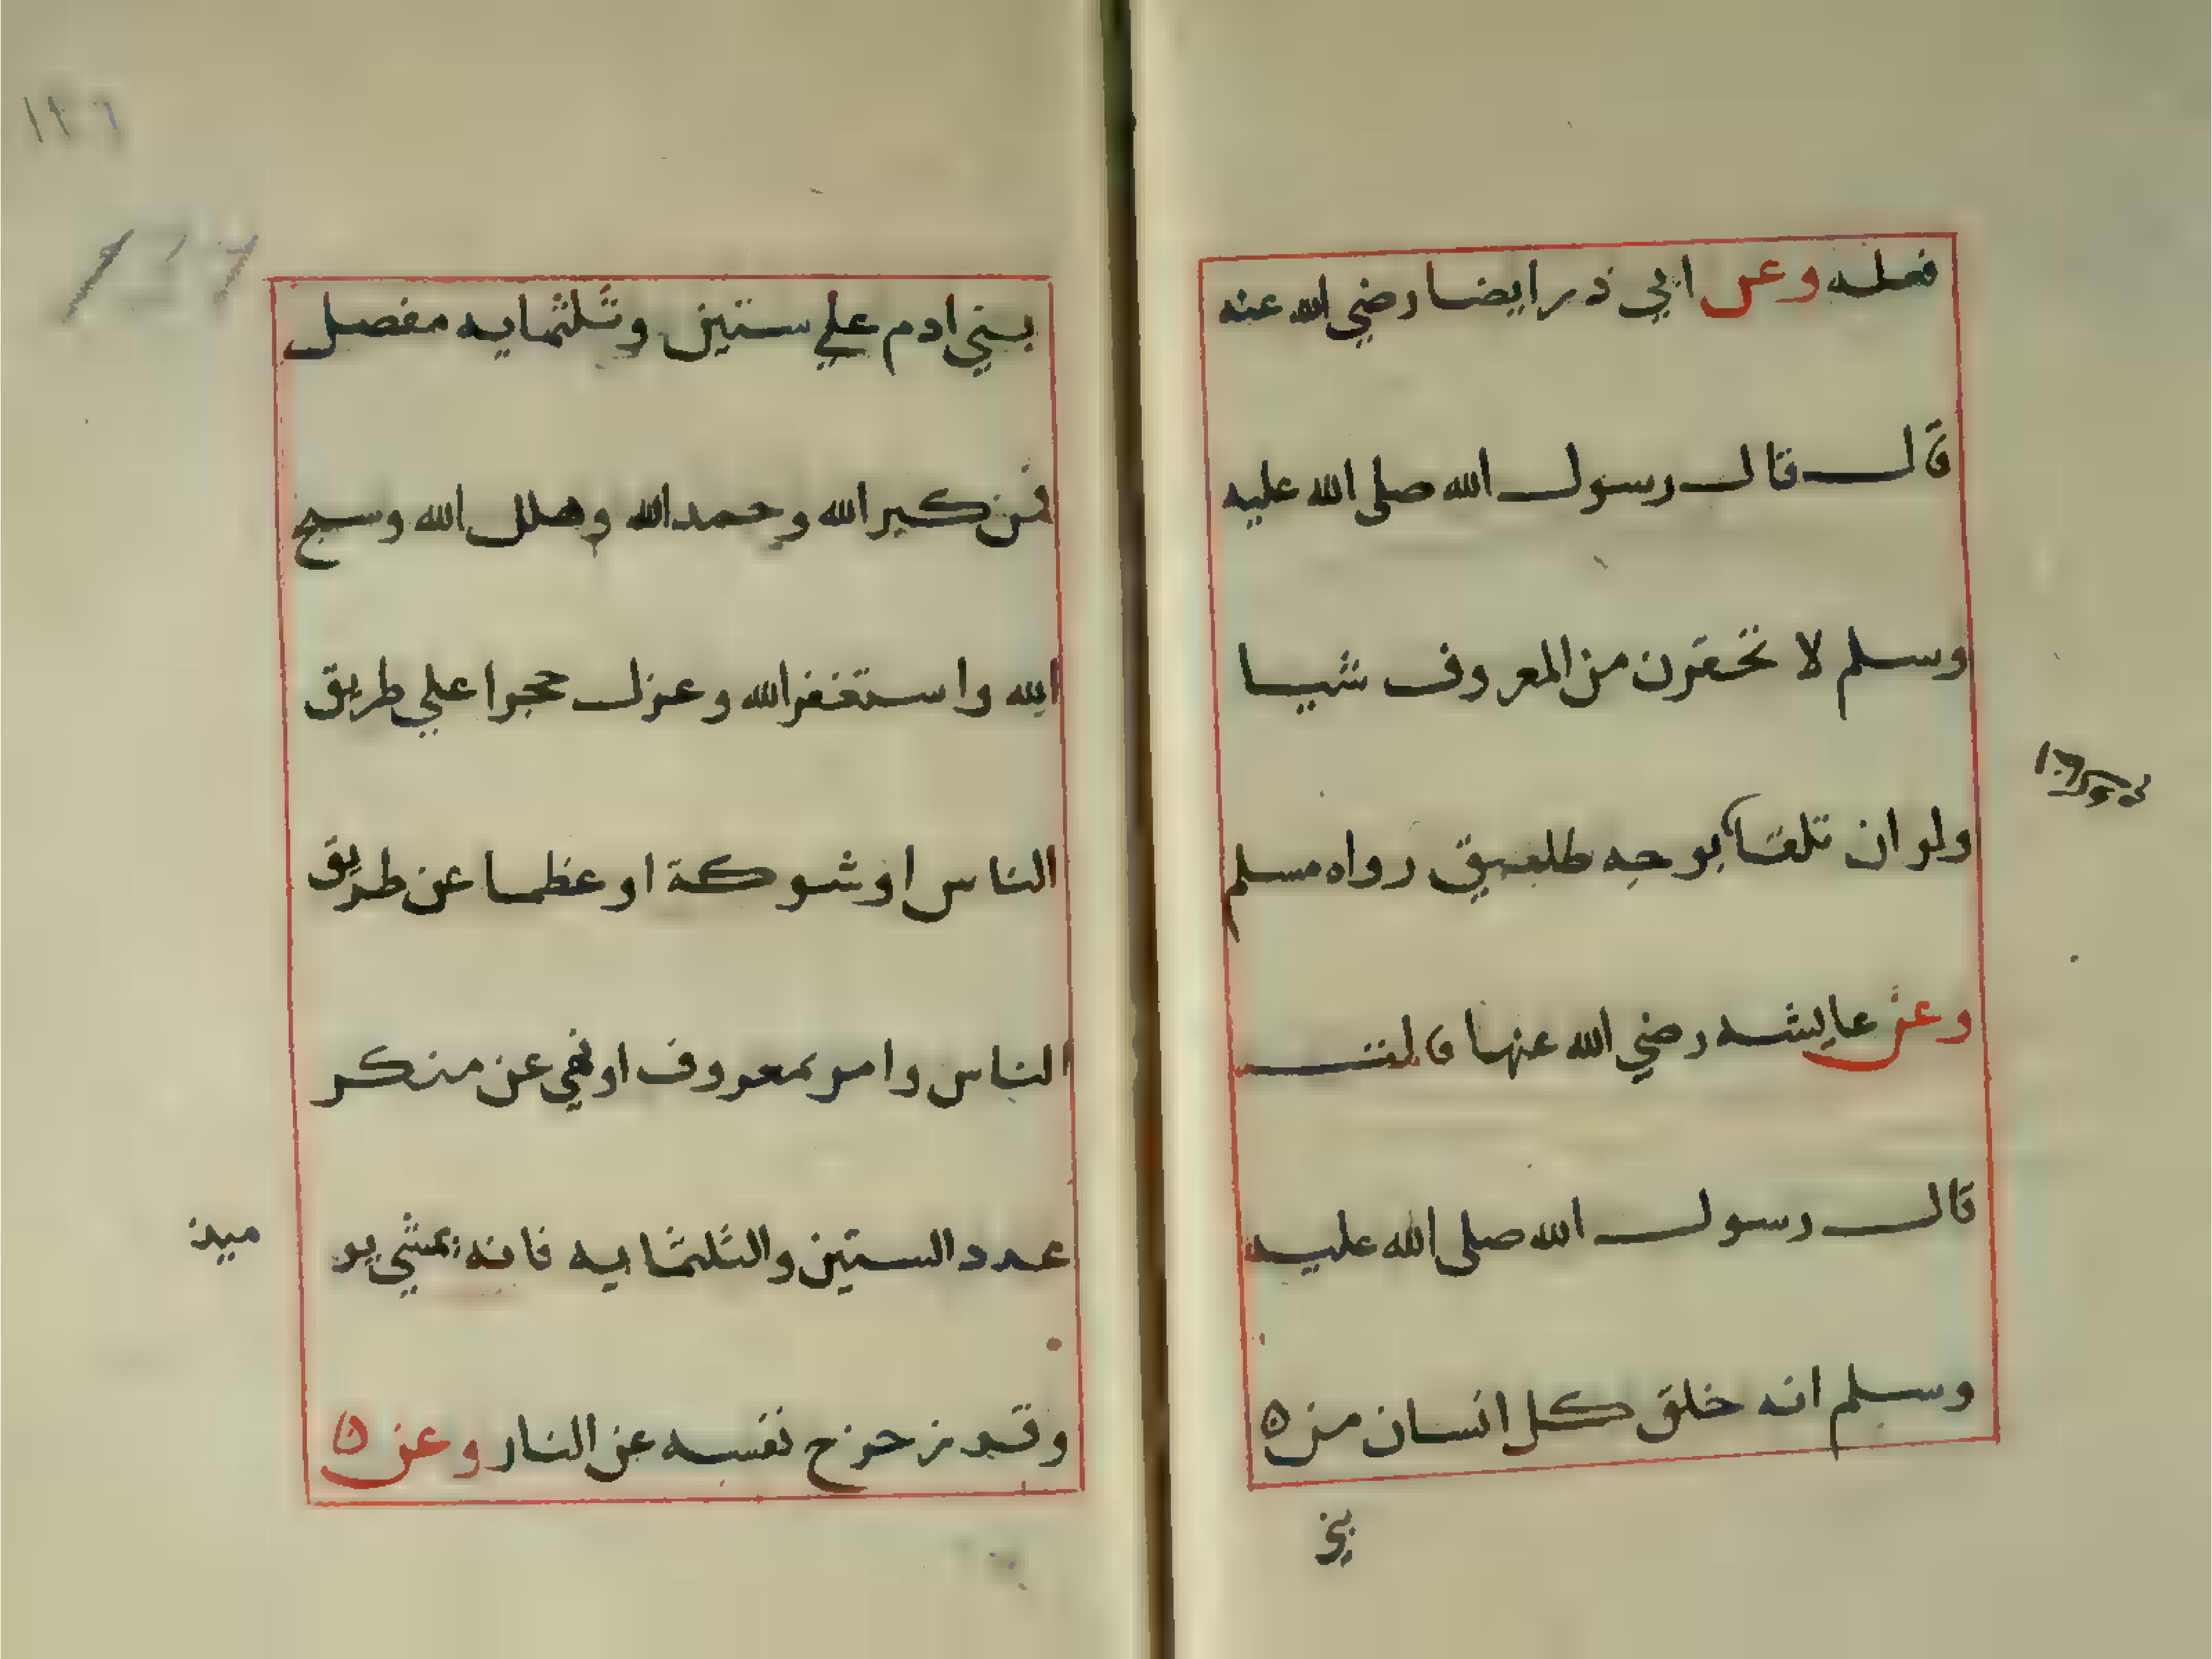 فعله وعن ابي ذر ايضا رضي الله عنه
قال قال رسول الله صلى الله عليه
وسلم لا تحقرن من المعروف شيا
ولو ان تلقا بوجه طليق رواه مسلم
وعن عايشه رضي الله عنها قالت
قال رسول الله صلى الله عليه
وسلم انه خلق كل انسان من ٥
بني
١٢٦
بني ادم علي ستين وثلثمايه مفصل
فمن كبر الله وحمد الله وهلل الله وسبح
الله واستغفر الله وعزل حجرا علي طريق
الناس او شوكة او عظما عن طريق
الناس وامر بمعروف او نهي عن منكر
عدد الستين والثلثمايه فانه يمشي يو
ميذ
وقد زحزح نفسه عن النار وعن ٥